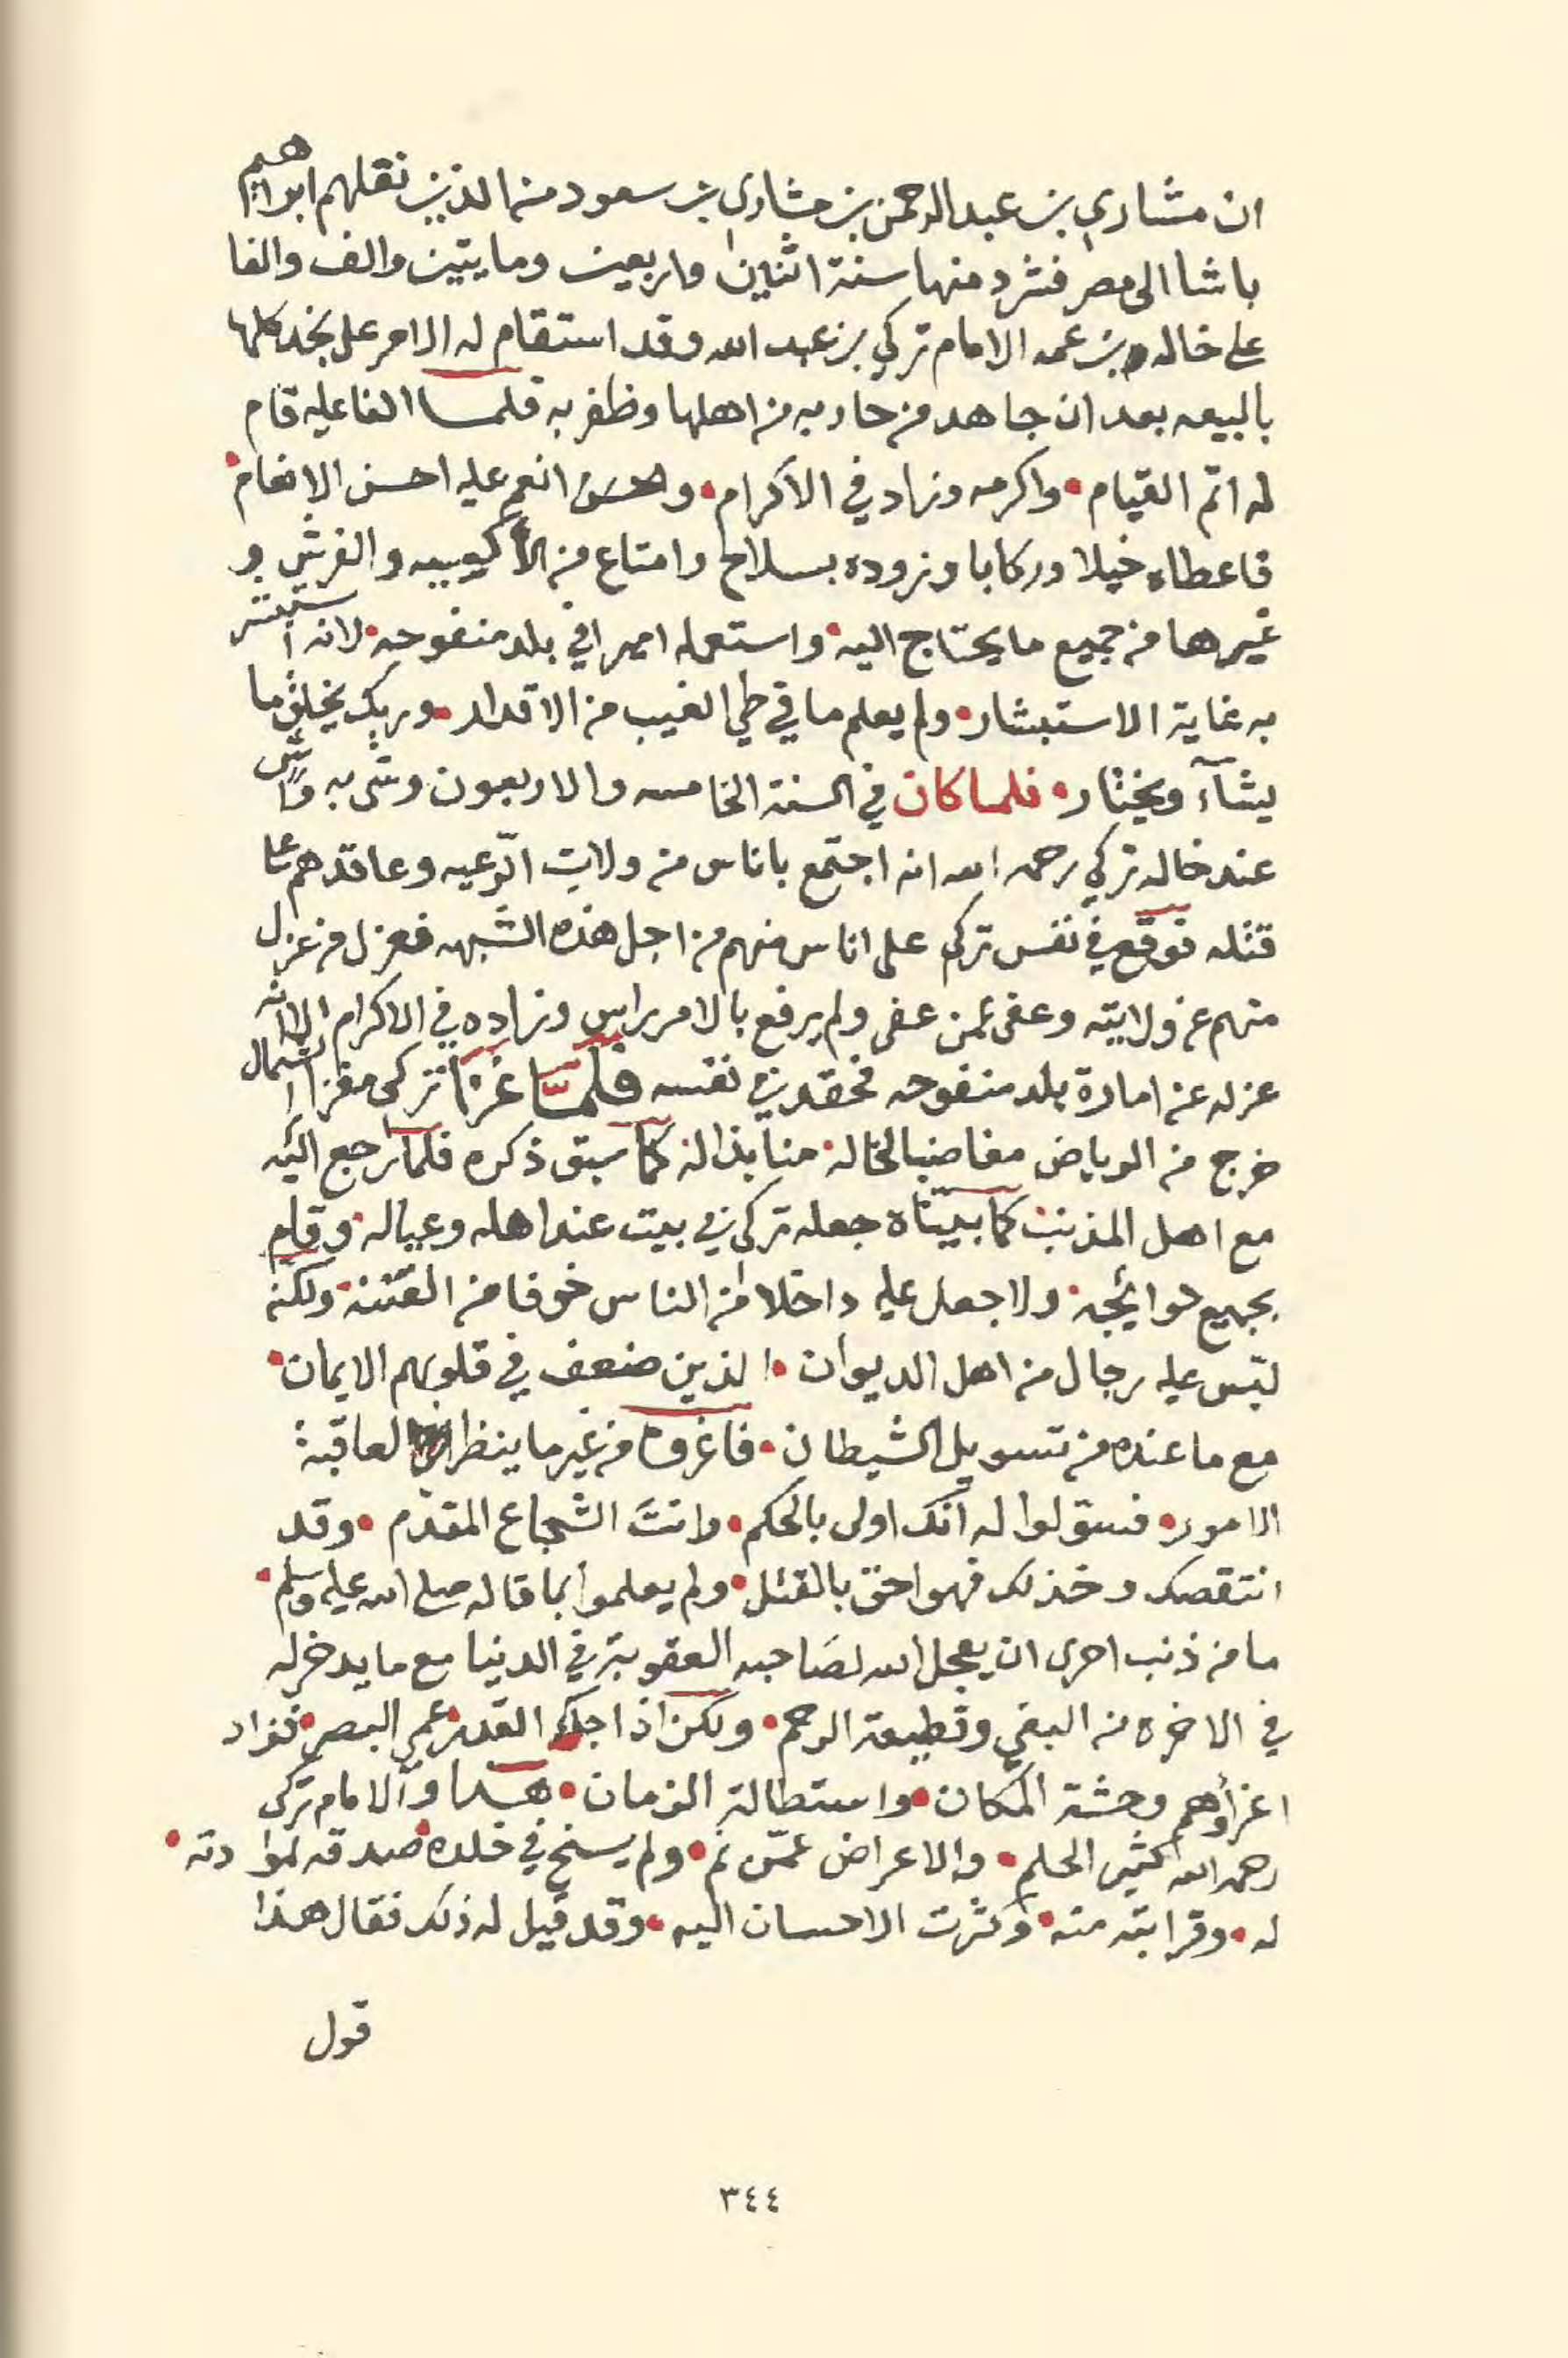 ان مشاري بن عبد الرحمن بن مشاري بن سعود من الذين نقلهم ابراهيم
باشا الى مصر فشرد منها سنة اثنين واربعين ومايتين والف والفا
على خاله وبن عمه الامام تركي بن عبد الله وقد استقام له الامر على نجد كلها
بالبيعه بعد ان جاهد من حاربه من اهلها وظفر به فلما الفا عليه قام
له اتم القيام • واكرمه وزاد في الاكرام • وانعم عليه احسن الانعام •
فاعطاه خيلا وركابا وزوده بسلاح وامتاع من الأكيسيه والفرش و
غيرها من جميع ما يحتاج اليه • واستعمله اميرا في بلد منفوحه • لانه استبشر
به غاية الاستبشار • ولم يعلم ما في طي الغيب من الاقدار • وربك يخلق ما
يشآء ويختار • فلما كان في السنة الخامسه والاربعون وشى به واشٍ
عند خاله تركي رحمه الله انه اجتمع باناس من ولات الرّعيه وعاقدهم على
قتله فوقع في نفس تركي على اناس منهم من اجل هذه الشبهه فعزل من عزل
منهم عن ولايته وعفى عمن عفى ولم يرفع بالامر راس وزاده في الاكرام الا انه
عزله عن امارة بلد منفوحه فحقد في نفسه فلمّا غزا تركي مغزا الشمال
خرج من الرياض مغاضبا لخاله • منابذا له كما سبق ذكره فلما رجع اليه
مع اهل المذنب كما بيّناه جعله تركي في بيت عند اهله وعياله • وقام
بجميع حوايجه • ولا جعل عليه داخلا من الناس خوفا من الفتنه • ولكنه
لبّس عليه رجال من اهل الديوان • الذين ضعف في قلوبهم الايمان •
مع ما عنده من تسويل الشيطان • فاغروه من غير ما ينظر لعاقبة
الامور • فسوّلوا له انك اولى بالحكم • وانتَ الشجاع المقدّم • وقد
انتقصك وخذلك فهو احق بالقتل • ولم يعلموا بما قاله صلى الله عليه وسلم •
ما من ذنب احرى ان يعجل الله لصَاحبه العقوبة في الدنيا مع ما يدخر له
في الاخره من البغي وقطيعة الرحم • ولكن اذا جاء القدر عمي البصر • فزاد
اغرآؤهم وحشة المكان • واستطالة الزمان • هذا والامام تركي
رحمه الله كثير الحلم • والاعراض عمّن نم • ولم يسنح في خلده صدقه لموادته •
له • وقرابته منه • وكثرت الاحسان اليه • وقد قيل له ذلك فقال هذا
قول
٣٤٤